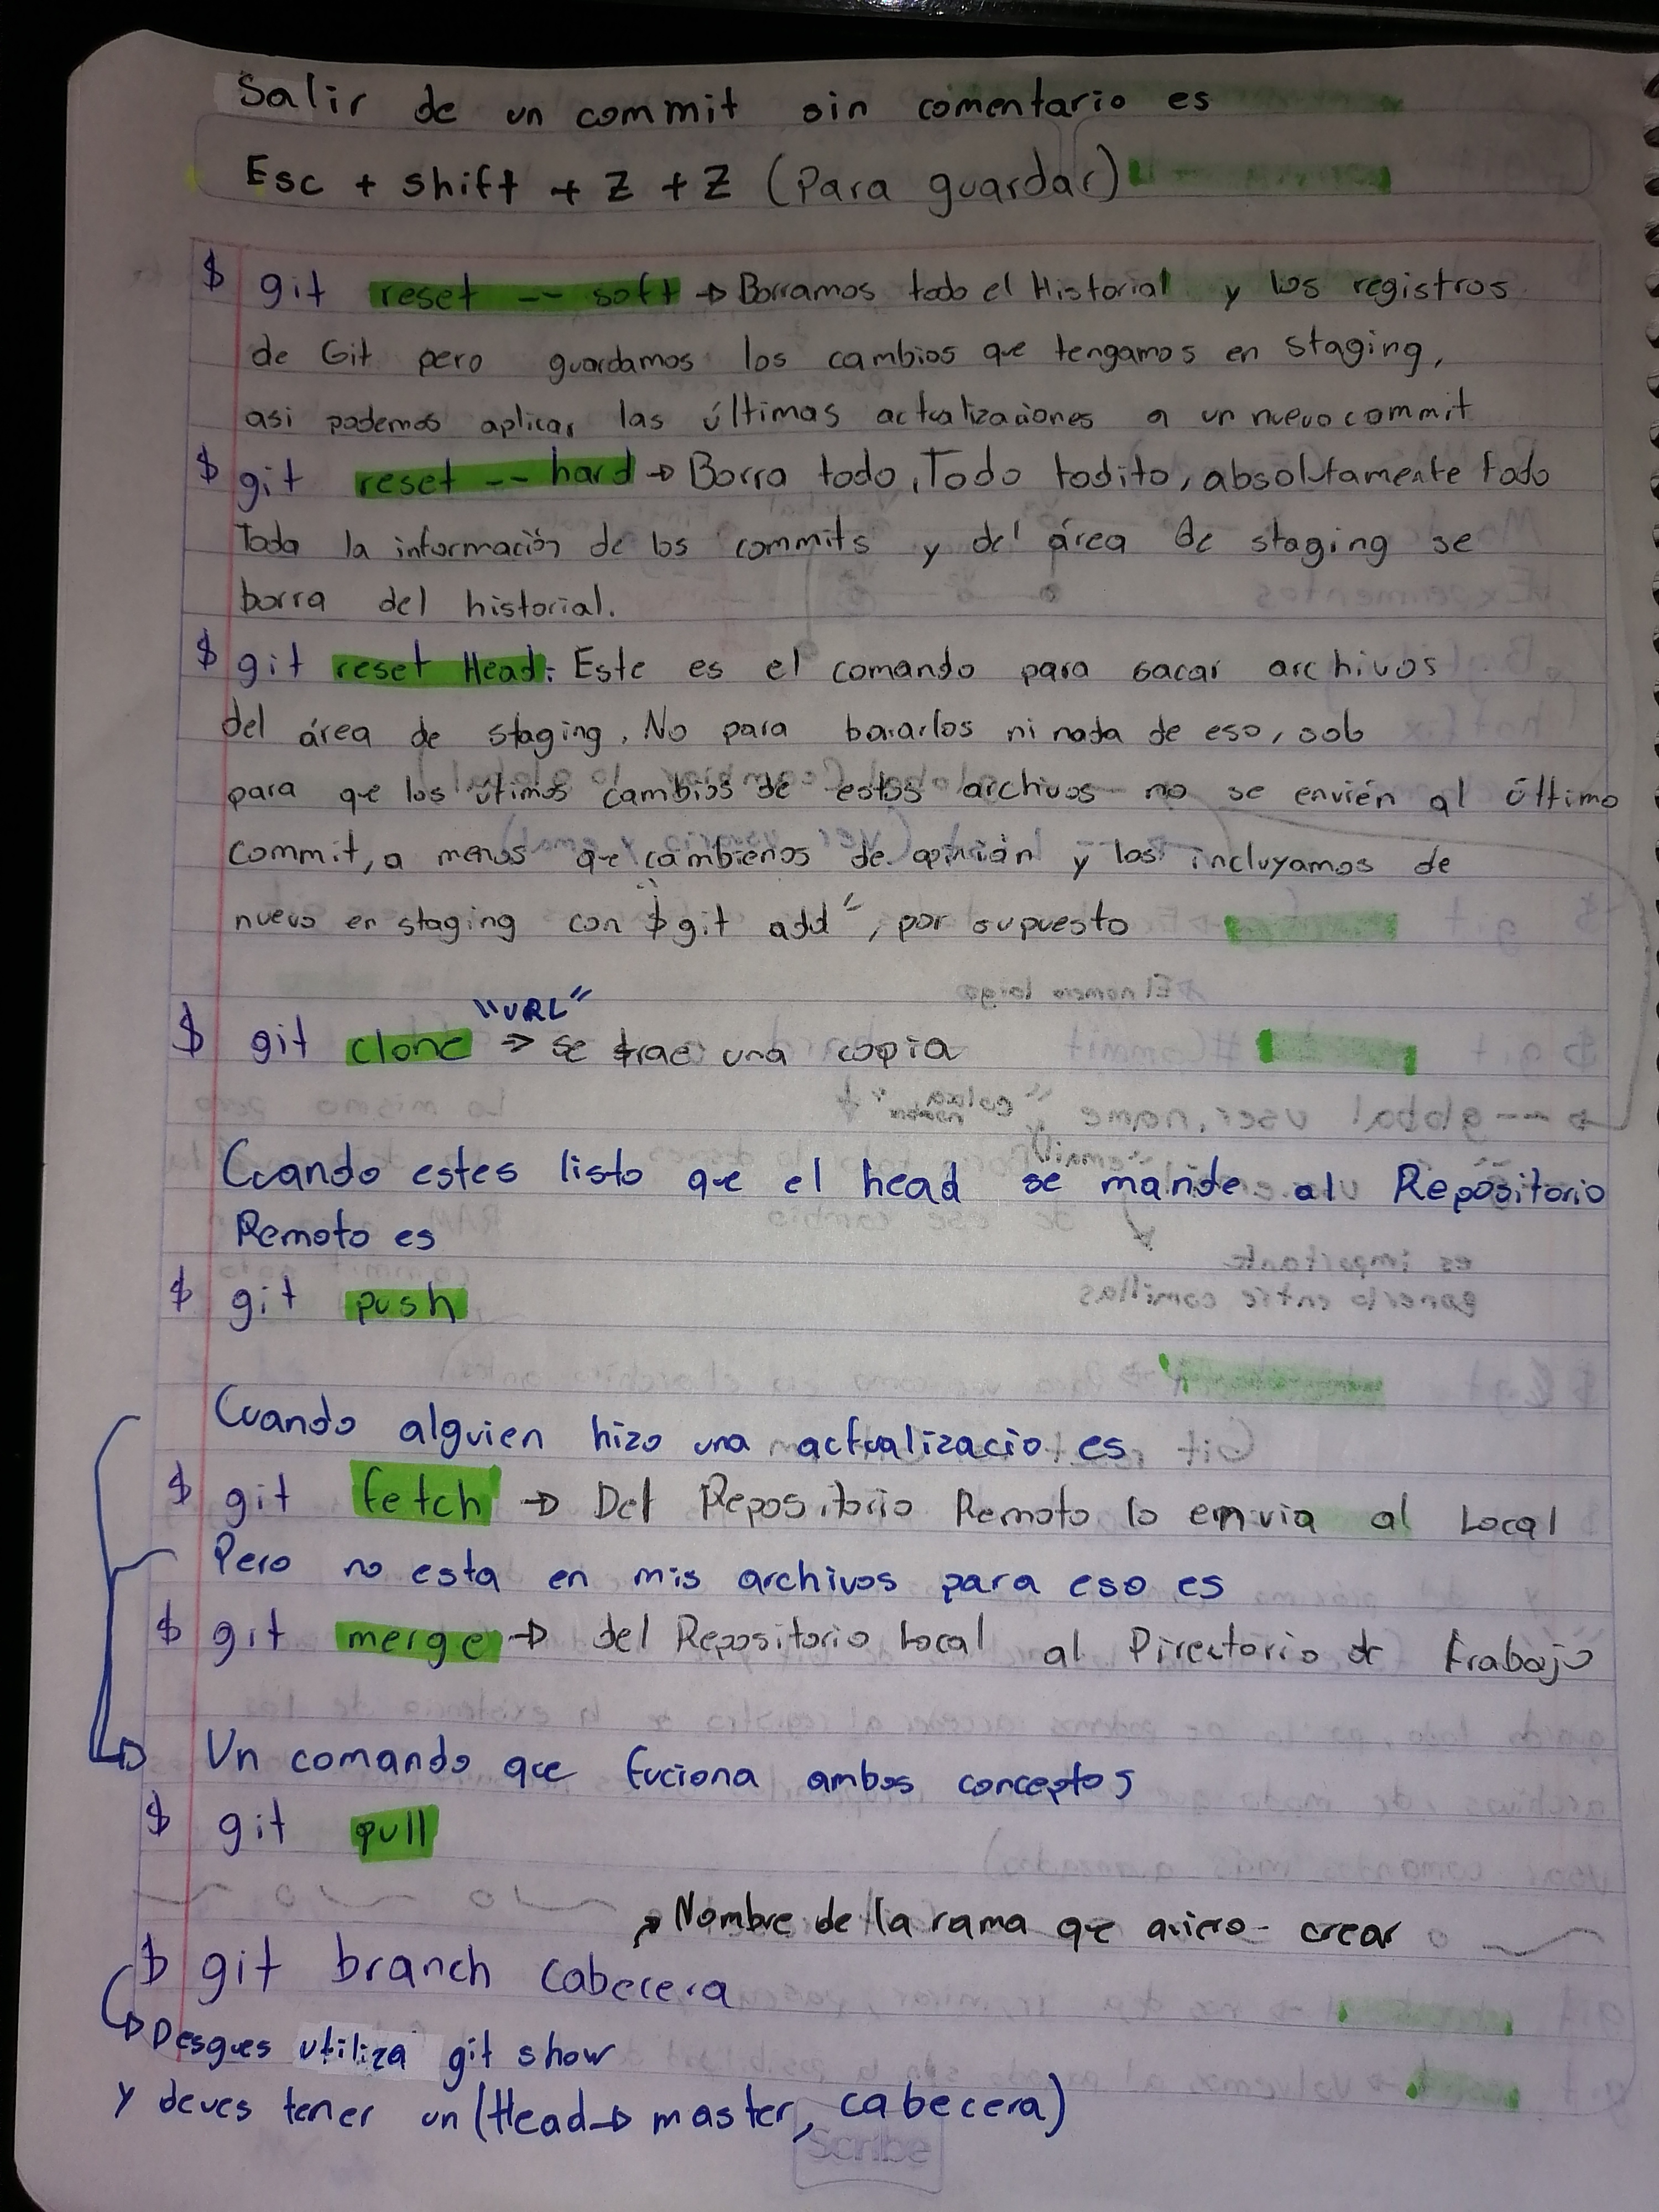 Salir de un commit sin comentario es
Esc + shift + Z + Z (Para guardar)
$ git reset -- soft → Borramos todo el Historial y los registros
de Git pero guardamos los cambios que tengamos en staging,
asi podemos aplicar las últimas actualizaciones a un nuevo commit
$ git reset -- hard → Borra todo, Todo todito, absolutamente todo
Toda la información de los commits y del área de staging se
borra del historial.
$ git reset Head: Este es el comando para sacar archivos
del área de staging. No para borarlos ni nada de eso, solo
para que los útimos cambios de estos archivos no se envién al último
commit, a menos que cambienos de opinión y los incluyamos de
nuevo en staging con "$ git add", por supuesto
"URL"
$ git clone → se trae una copia
Cuando estes listo que el head se mande al Repositorio
Remoto es
$ git push
Cuando alguien hizo una actualizacio es
$ git fetch → Del Repositorio Remoto lo envia al Local
Pero no esta en mis archivos para eso es
$ git merge → del Repositorio Local al Directorio de trabajo
Un comando que fuciona ambos conceptos
$ git pull
→ Nombre de la rama que quiero crear
$ git branch cabecera
→ Despues utiliza git show
y deves tener un (Head → master, cabecera)
Scribe